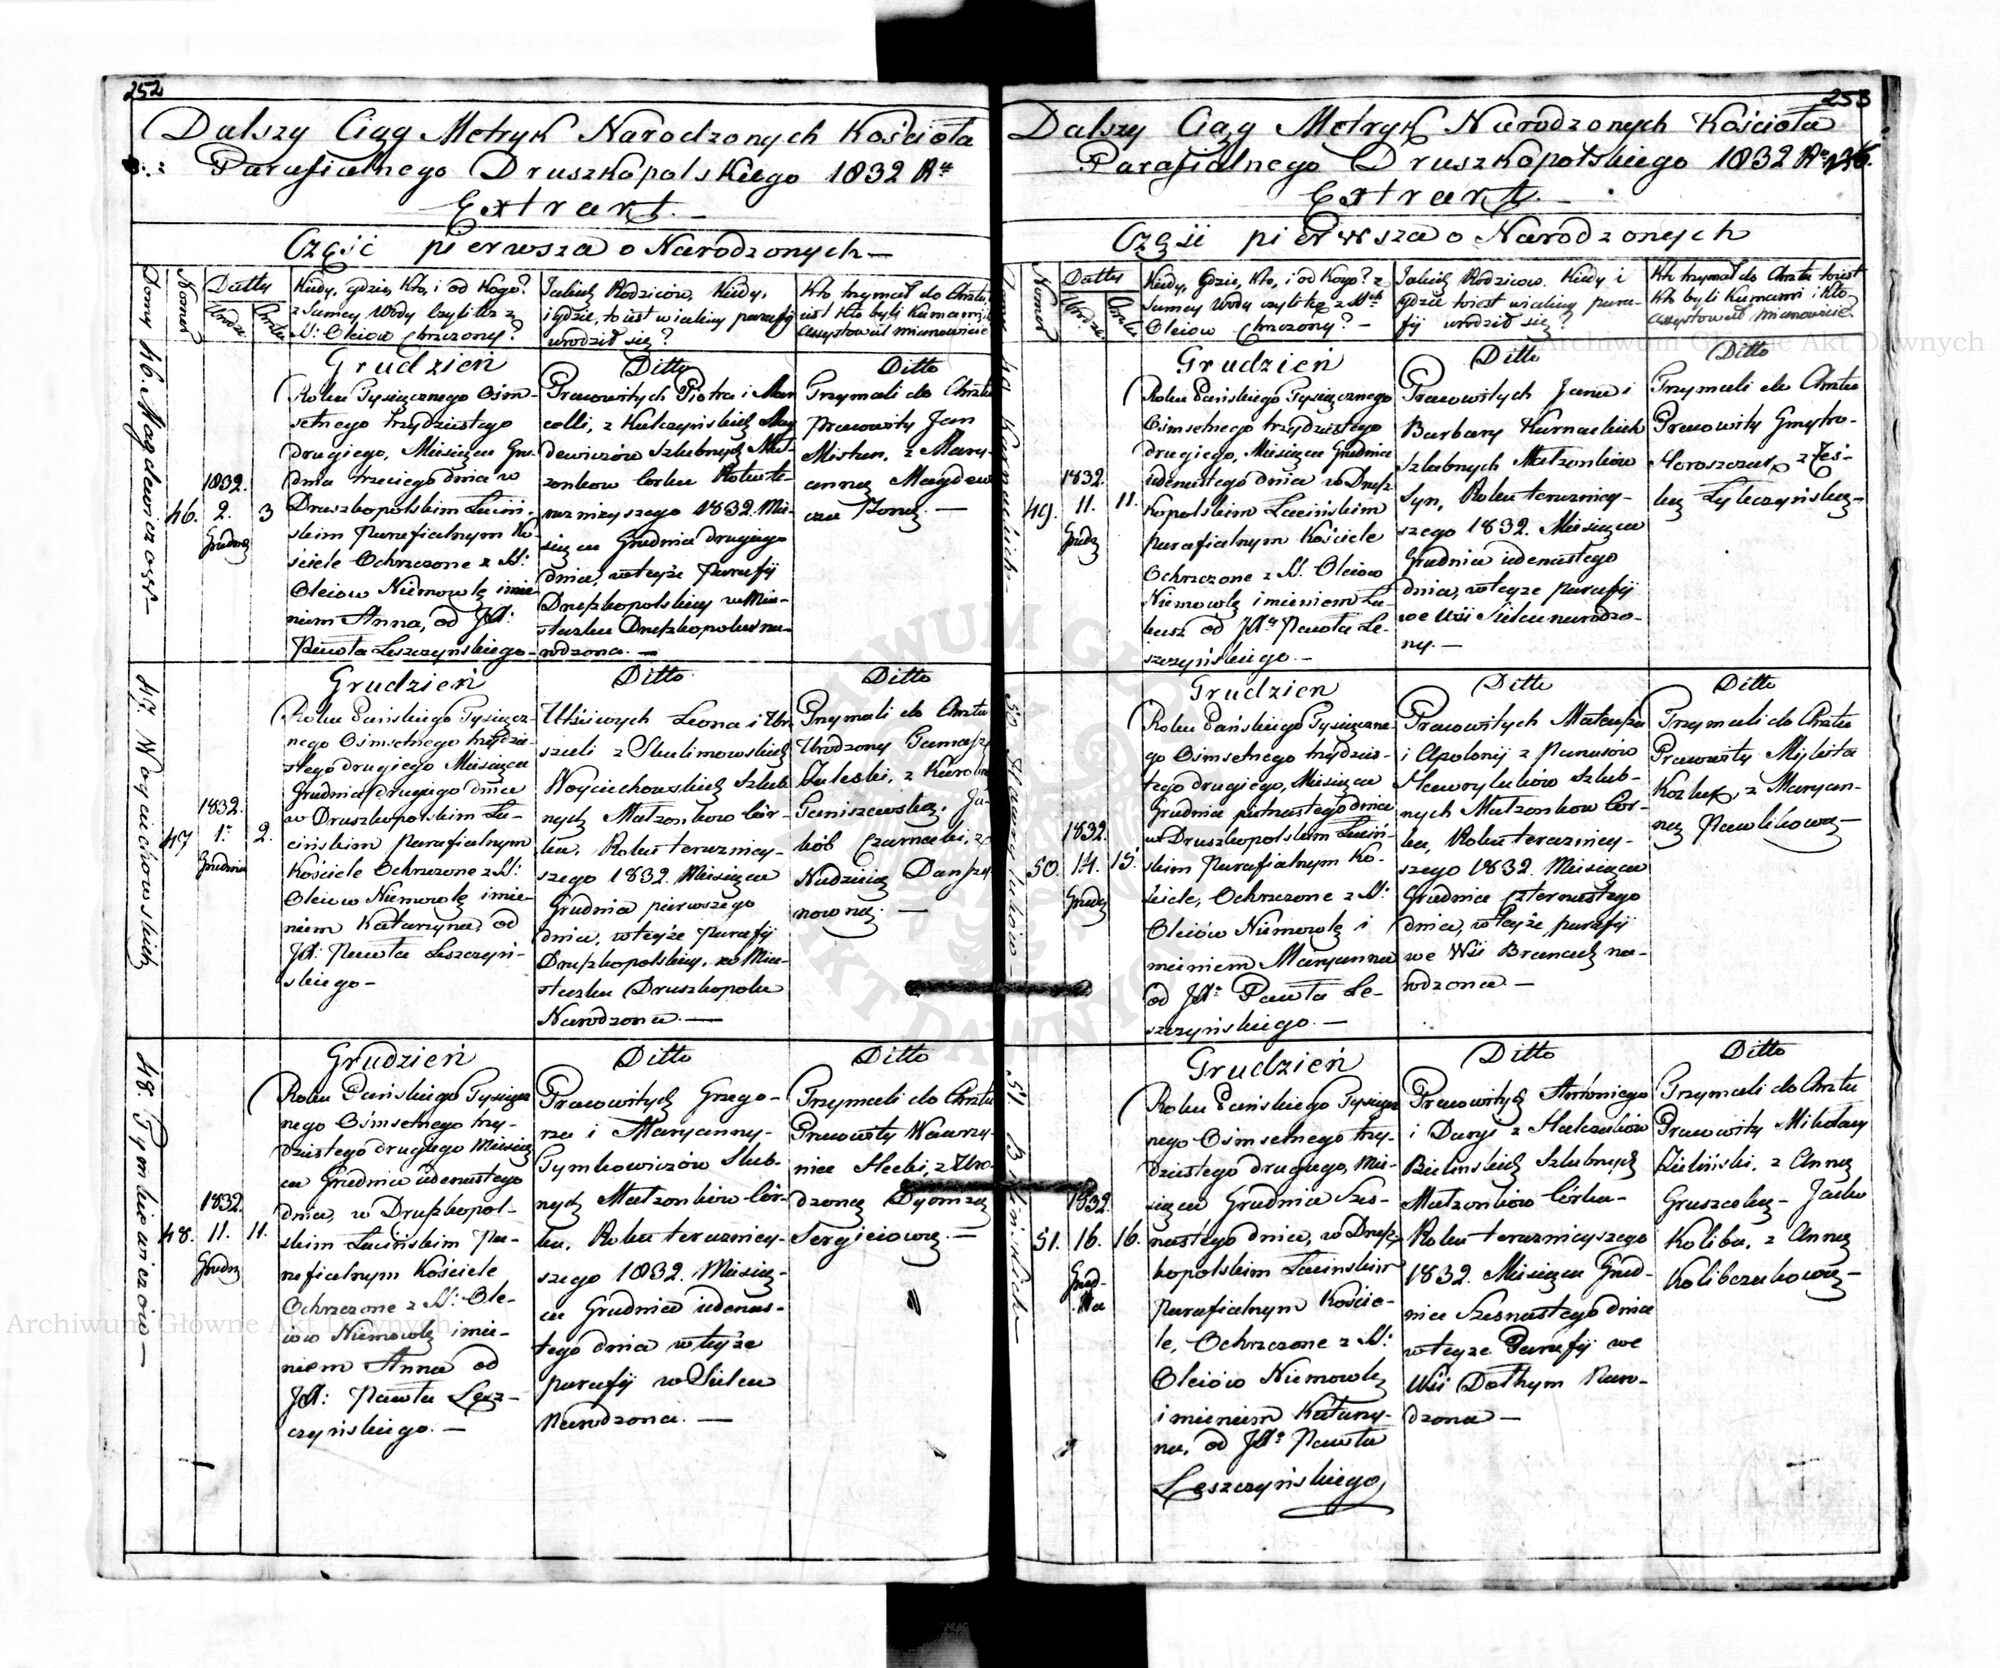 252
Dalszy Ciąg Metryk Narodzonych Kościoła
Parafialnego Druszkopolskiego 1832 Ru
Extrakt. —
Część pierwsza o Narodzonych —
Domy
Numer
Datty
Urodz:
Chrztu
Kiedy, gdzie, kto, i od kogo?
z Samey Wody czyli też z
SS: Oleiow chrzczony?
Jakich Rodziców, kiedy,
i gdzie, to iest w iakiey parafij
urodził się?
Kto trzymał do Chrztu,
iest kto byli Kumami i
assystowali mianowicie
46. Magdewiczow —
46.
1832.
2.
Grudnia
3
Grudzień
Roku Tysiącznego Ośm-
setnego trzydziestego
drugiego, Miesiąca Gru-
dnia trzeciego dnia w
Druszkopolskim Łaciń-
skim Parafialnym Ko-
ściele Ochrzczone z SS:
Oleiow Niemowlę imie-
niem Anna, od JX:
Pawła Leszczyńskiego —
Ditto
Pracowitych Piotra i Mar
celli, z Kulczyńskich Mag
dewiczów Szlubnych Mał-
żonkow Corka Roku te-
raznieyszego 1832. Mie-
siąca Grudnia drugiego
dnia, wteyże Parafij
Druszkopolskiey w Mia-
steczku Druszkopolu na-
rodzona. —
Ditto
Trzymali do Chrztu
Pracowity Jan
Misken, z Mary-
anną Magdew
czu Żoną. —
47. Woyciechowskich
47
1832.
1.
Grudnia
2.
Grudzień
Roku Pańskiego Tysiącz-
nego Ośmsetnego trzydzie-
stego drugiego Miesiąca
Grudnia drugiego dnia
w Druszkopolskim Ła-
cińskim Parafialnym
Kościele Ochrzczone z SS:
Oleiow Niemowlę imie-
niem Katarzyna, od
JX: Pawła Leszczyń-
skiego —
Ditto
Uściwych Leona i Ur-
szuli z Skulimowskich
Woyciechowskich Szlub-
nych Małżonkow Cór-
ka, Roku teraźniey-
szego 1832. Miesiąca
Grudnia pierwszego
dnia, wteyże Parafij
Druszkopolskiey, w Mia-
steczku Druszkopolu
Narodzona. —
Ditto
Trzymali do Chrztu
Urodzony Tomasz
Zaleski, z Karoliną
Ganiszewską. Ja-
kób Czarnecki, z
Nadzieią
nowną. —
48. Tymkiewiczow —
48.
1832.
11.
Grudn
11.
Grudzień
Roku Pańskiego Tysiącz
nego Ośmsetnego trzy-
dziestego drugiego Miesią
ca Grudnia iedenastego
dnia, w Druszkopol-
skim Łacińskim Pa-
rafialnym Kościele
Ochrzczone z SS: Ole-
iow Niemowlę imie-
niem Anna od
JX: Pawła Lesz-
czyńskiego. —
Ditto
Pracowitych Grzego-
rza i Maryanny
Tymkowiczów Slub-
nych Małżonków Cór-
ka, Roku teraźniey-
szego 1832. Miesią-
ca Grudnia iedenas-
tego dnia wteyże
parafij w Sielcu
Narodzona. —
Ditto
Trzymali do Chrztu
Pracowity Wawrzy-
niec Slecki, z Uro-
dzoną Dyonizą
Sergieiową. —
253
Dalszy Ciąg Metryk Narodzonych Kościoła
Parafialnego Druszkopolskiego 1832 Ru 136.
Extrakt. —
Część pierwsza o Narodzonych
Domy
Numer
Datty
Urodz:
Chrztu
Kiedy, Gdzie, Kto, i od Kogo? z
Samey Wody czyli też z SSch
Oleiow chrzczony? —
Jakich Rodzicow. Kiedy i
gdzie toiest w iakiey para-
fij urodził się?
Kto trzymał do Chrztu toiest
kto byli Kumami i kto
assystował mianowicie
49. Karnackich —
49.
1832.
11.
Grudz
11.
Grudzień
Roku Pańskiego Tysiącznego
Ośmsetnego trzydziestego
drugiego, Miesiąca Grudnia
iedenastego dnia w Drusz
kopolskim Łacińskim
parafialnym Kościele
Ochrzczone z SS. Oleiow
Niemowlę imieniem Łu-
kasz od JXa Pawła Le-
szczyńskiego —
Ditto
Pracowitych Jana i
Barbary Karnackich
Szlubnych Małżonków
Syn, Roku teraźniey-
szego 1832. Miesiąca
Grudnia iedenastego
dnia, wteyże parafij
we Wsi Sielcu narodzo-
ny. —
Ditto
Trzymali do Chrztu
Pracowity Gmytro-
Horoszczuk, z Teś-
ką Łytczyńską —
50 Hawrylukow —
50.
1832.
14.
Grudz
15.
Grudzien
Roku Pańskiego Tysiączne
go Ośmsetnego trzydzies-
tego drugiego, Miesiąca
Grudnia pietnastego dnia
w Druszkopolskim Łaciń-
skim Parafialnym Ko-
ściele, Ochrzczone z SS:
Oleiów Niemowlę i
mieniem Maryanna
od JXa Pawła Le-
szczyńskiego. —
Ditto
Pracowitych Mateusza
i Apolonij z Panasów
Hawrylukiów Szlub-
nych Małżonkow Cor-
ka, Roku teraźniey-
szego 1832. Miesiąca
Grudnia czternastego
dnia, wteyże parafij
we Wsi Branach na-
rodzona. —
Ditto
Trzymali do Chrztu
Pracowity Mykita
Kozłuk, z Maryan-
ną Pawlikową —
51. Bielinskich —
51.
1832.
16.
Grud-
nia
16.
Grudzień
Roku Pańskiego Tysiącz
nego Ośmsetnego trzy-
dziestego drugiego, Mie-
siąca Grudnia Szes-
nastego dnia, w Drusz-
kopolskim Łacinskim
parafialnym Kościo-
le, Ochrzczone z SS:
Oleiów Niemowlę
imieniem Katarzy-
na, od JXa Pawła
Leszczyńskiego
Ditto
Pracowitych Antoniego
i Daryi z Halczuków
Bielinskich Szlubnych
Małżonków Córka —
Roku teraznieyszego
1832. Miesiąca Grud-
nia Szesnastego dnia
wteyże Parafij we
Wsi Dołhym Naro-
dzona —
Ditto
Trzymali do Chrztu
Pracowity Mikołay
Zieliński, z Anną
Gruszecką — Jasko
Koliba, z Anną
Kolibczukową —
Archiwum Główne Akt Dawnych
Archiwum Główne Akt Dawnych
ARCHIWUM GŁÓWNE AKT DAWNYCH